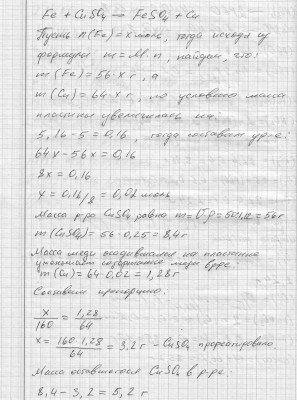 Fe + CuSO4 → FeSO4 + Cu
Пусть n(Fe)=x моль, тогда исходя из
формулы m=M·n, найдем, что:
m(Fe)=56·x г, а
m(Cu)=64·x г, по условию масса
пластины увеличилась на:
5,16-5=0,16, тогда составим ур-е:
64x-56x=0,16
8x=0,16
x=0,16/8=0,02 моль
Масса р-ра CuSO4 равна m=V·ρ=50·1,12=56г
m(CuSO4)=56·0,15=8,4г
Масса меди осадившаяся на пластинке
уменьшает содержание меди в р-ре
m(Cu)=64·0,02=1,28г
Составим пропорцию.
x/160 = 1,28/64
x= 160·1,28/64 =3,2г - CuSO4 прореагировало
Масса оставшегося CuSO4 в р-ре:
8,4-3,2=5,2г